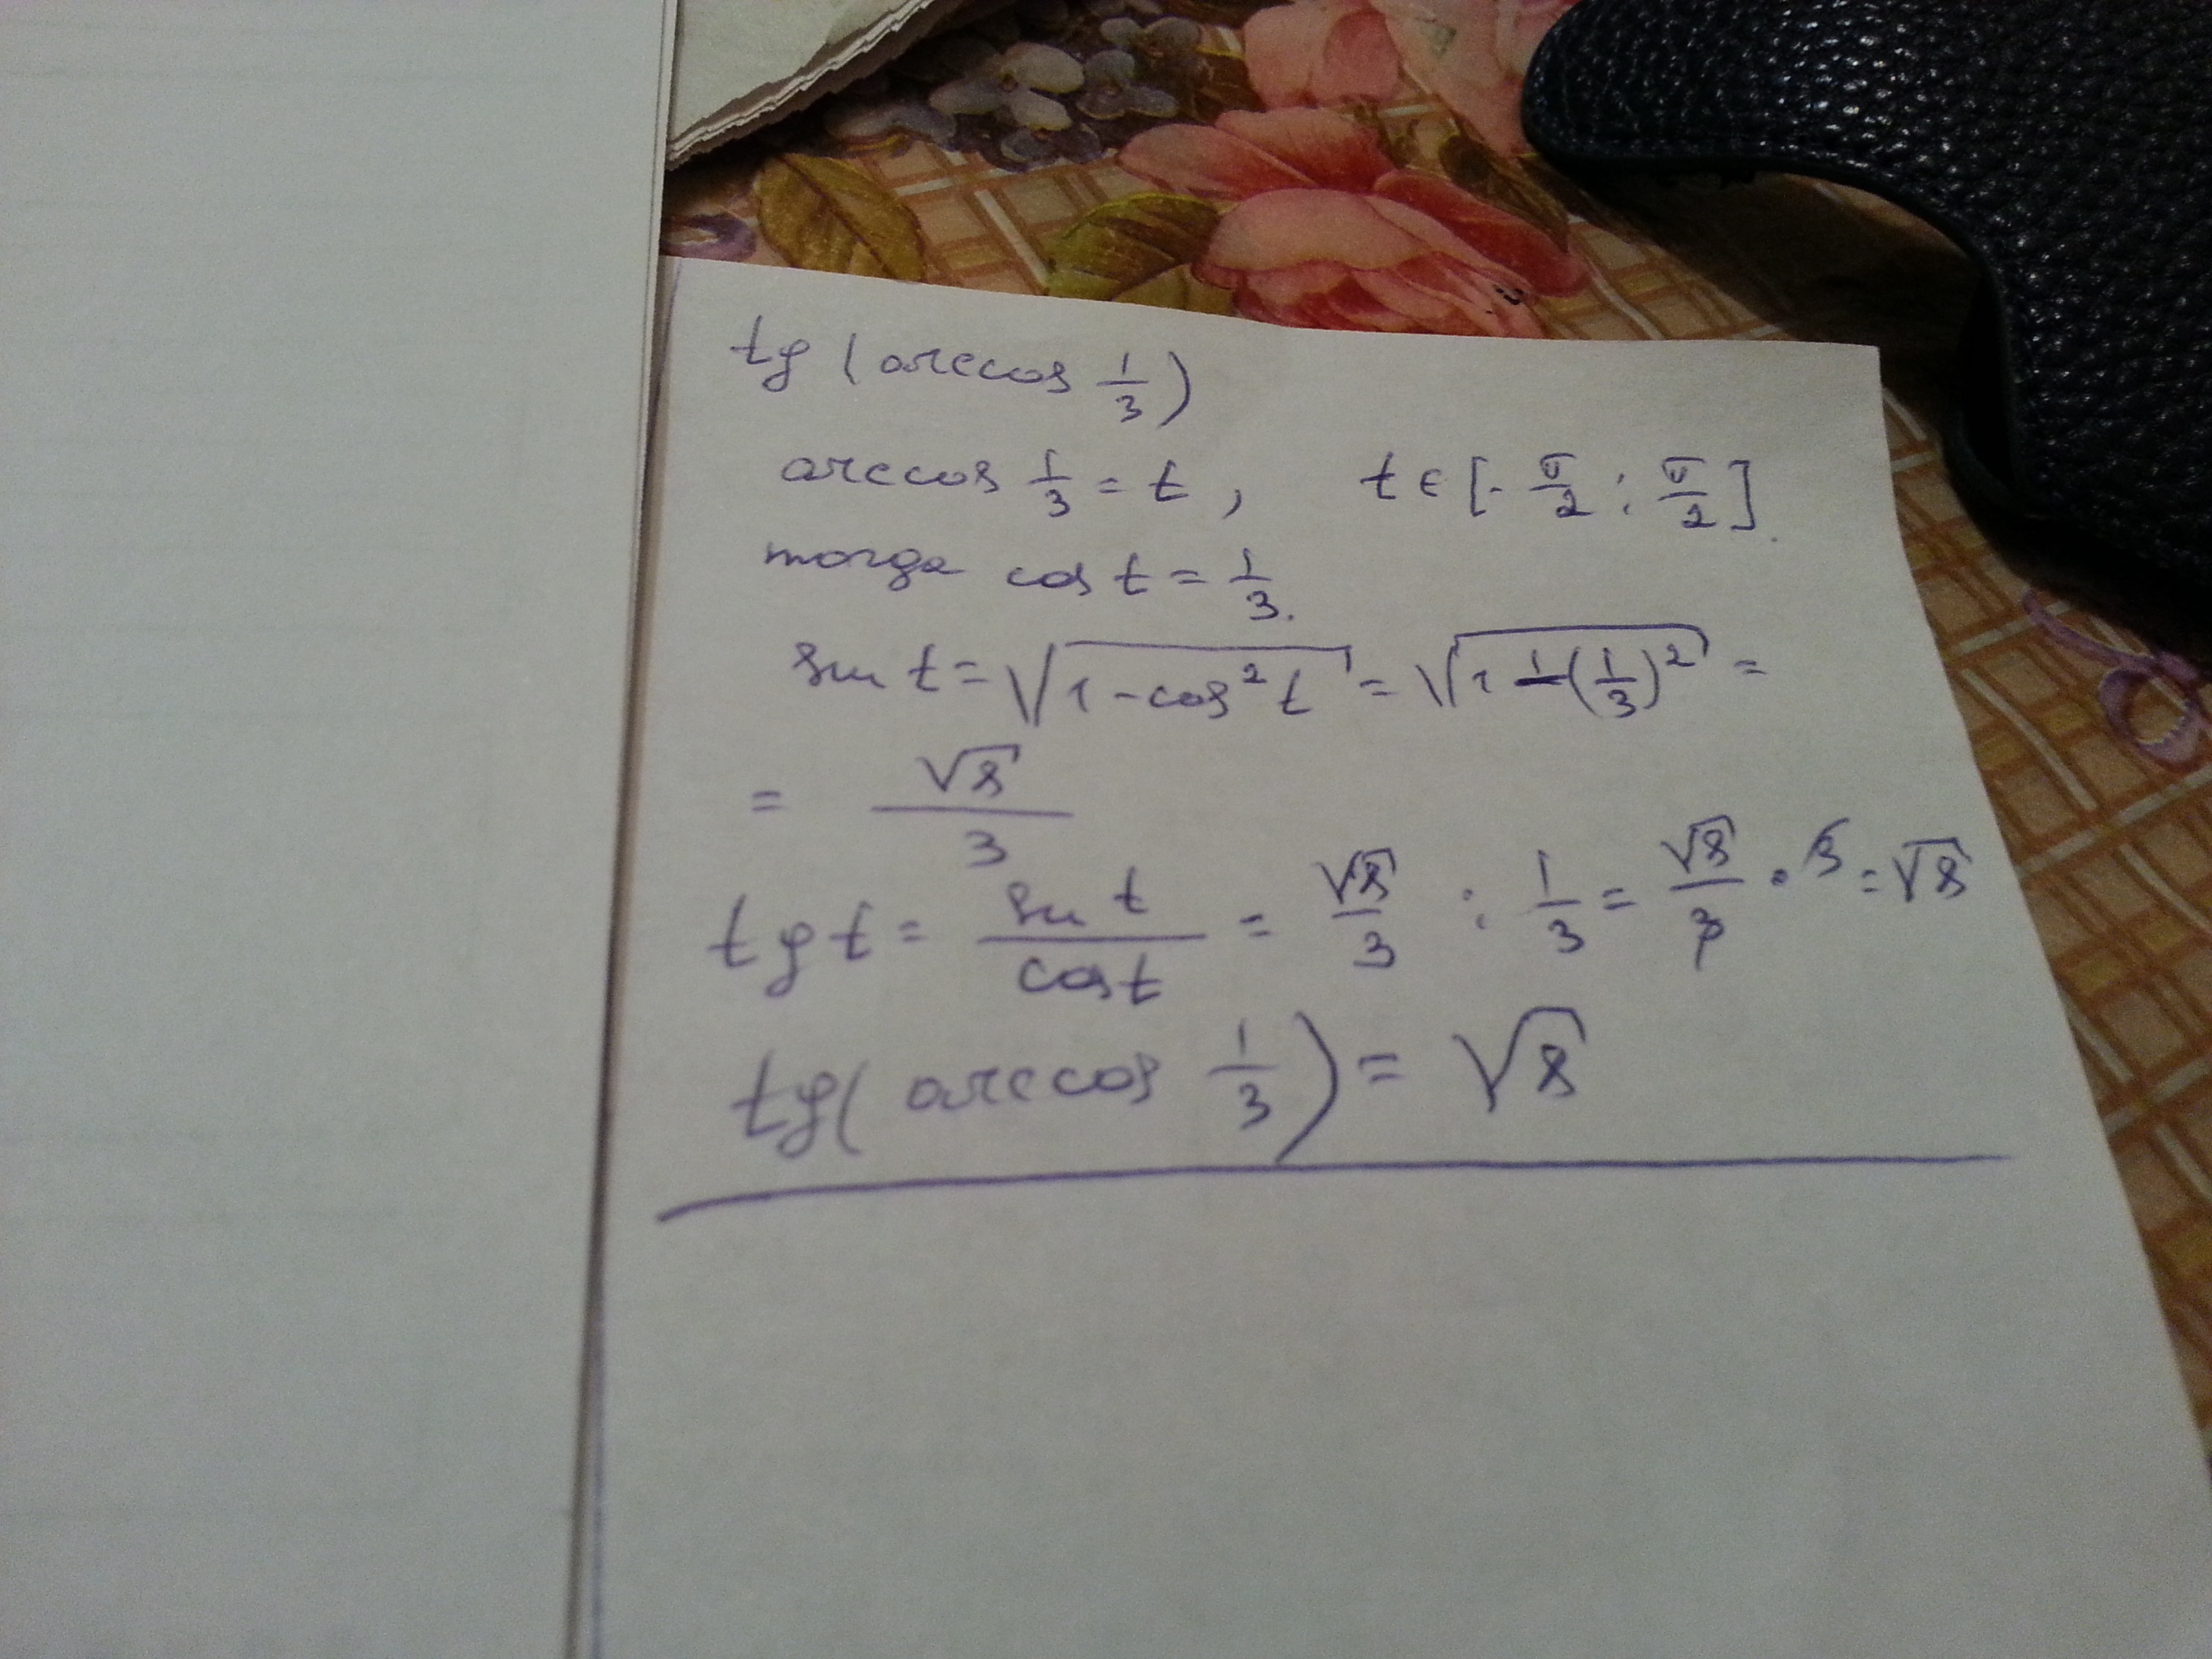 tg (arccos 1/3)
arccos 1/3 = t, t ∈ [- π/2 ; π/2].
тогда cos t = 1/3.
sin t = √(1 - cos² t) = √(1 - (1/3)²) =
= √8/3
tg t = sin t/cos t = √8/3 : 1/3 = √8/3 · 3 = √8
tg( arccos 1/3 ) = √8